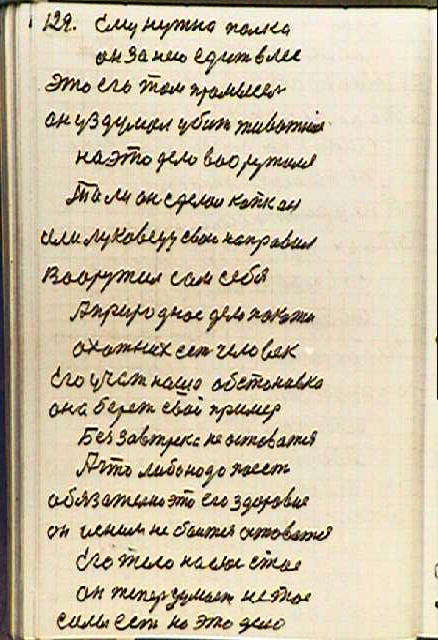 129. Ему нужна палка
он за нею едит влес
это его там промысел
он уздумал убит животная
на это дело вооружился
То ли он сделал капкан
или луковецу свою направил
Вооружил сам себя
А природное дело
охотник сет человек
Его учат наша обстановка
она берет свой пример
Без завтрека не оставатся
А что либо надо поест
обязательно это его здоровие
он с ним не боится оставатся
Его тело
он тепер думает не
силы ест на это дело